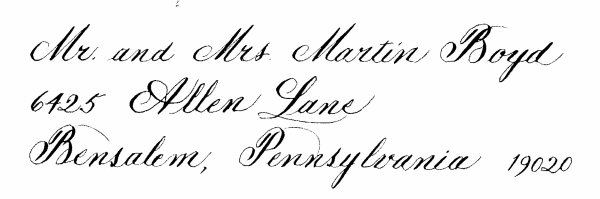 Mr. and Mrs. Martin Boyd
6425 Allen Lane
Bensalem, Pennsylvania 19020